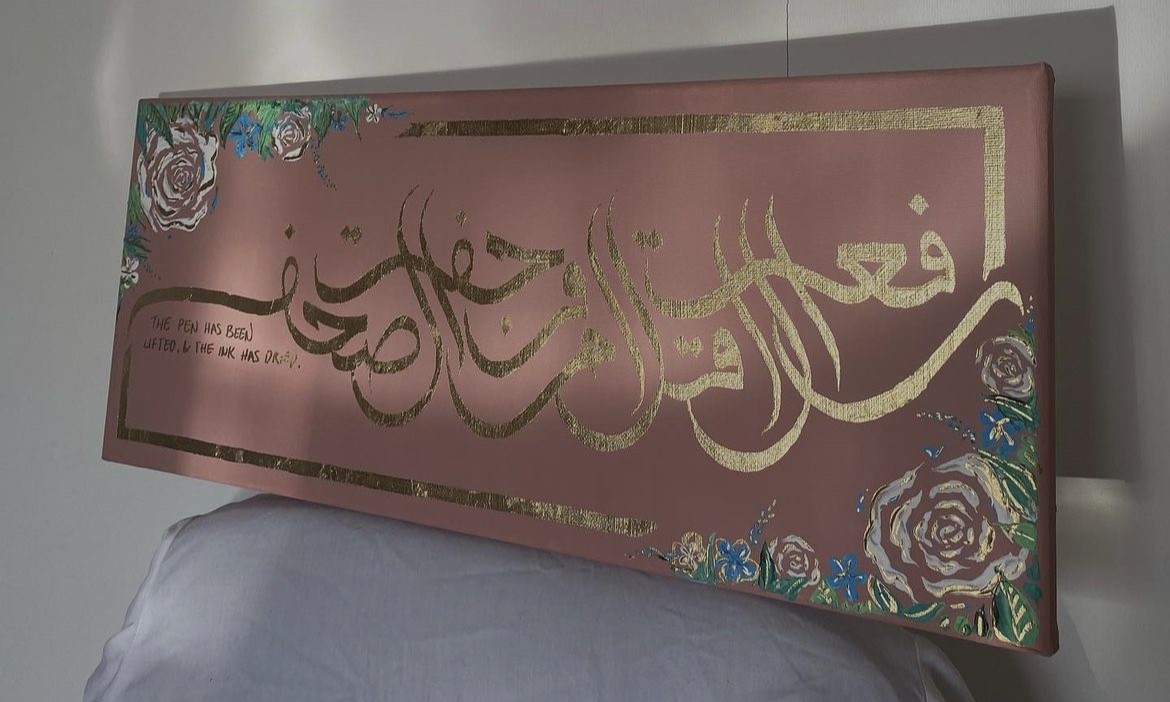 رفعت الاقلام وجفت الصحف
THE PEN HAS BEEN
LIFTED, & THE INK HAS DRIED.